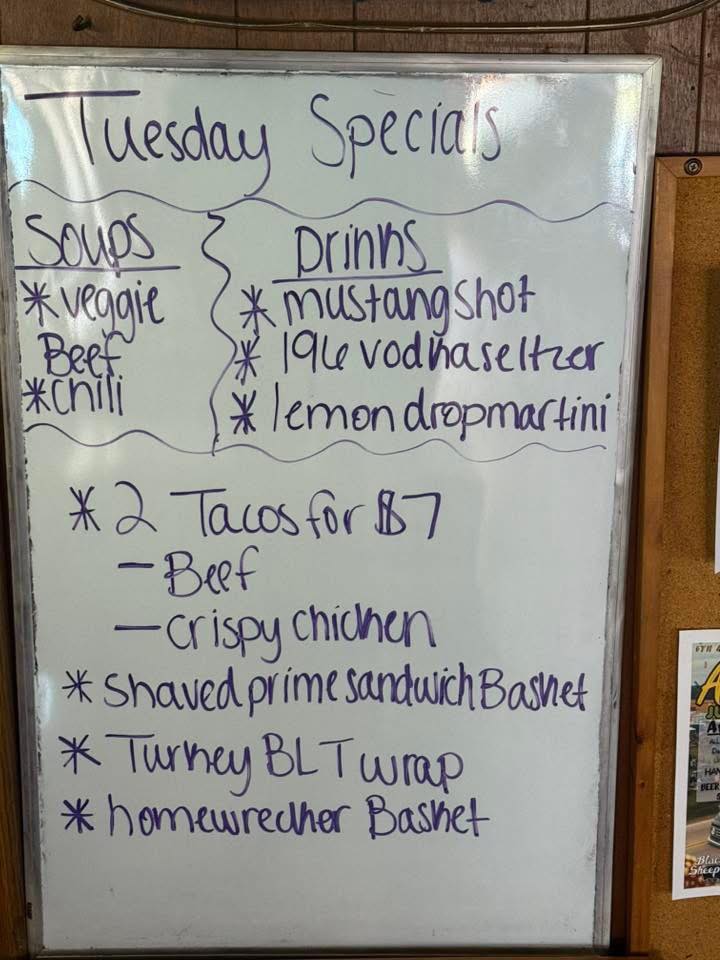 Tuesday Specials
Soups
* veggie
Beef
* chili
Drinks
* mustang shot
* 196 vodka seltzer
* lemon drop martini
* 2 Tacos for $7
- Beef
- crispy chicken
* shaved prime sandwich Basket
* Turkey BLT wrap
* homewrecker Basket